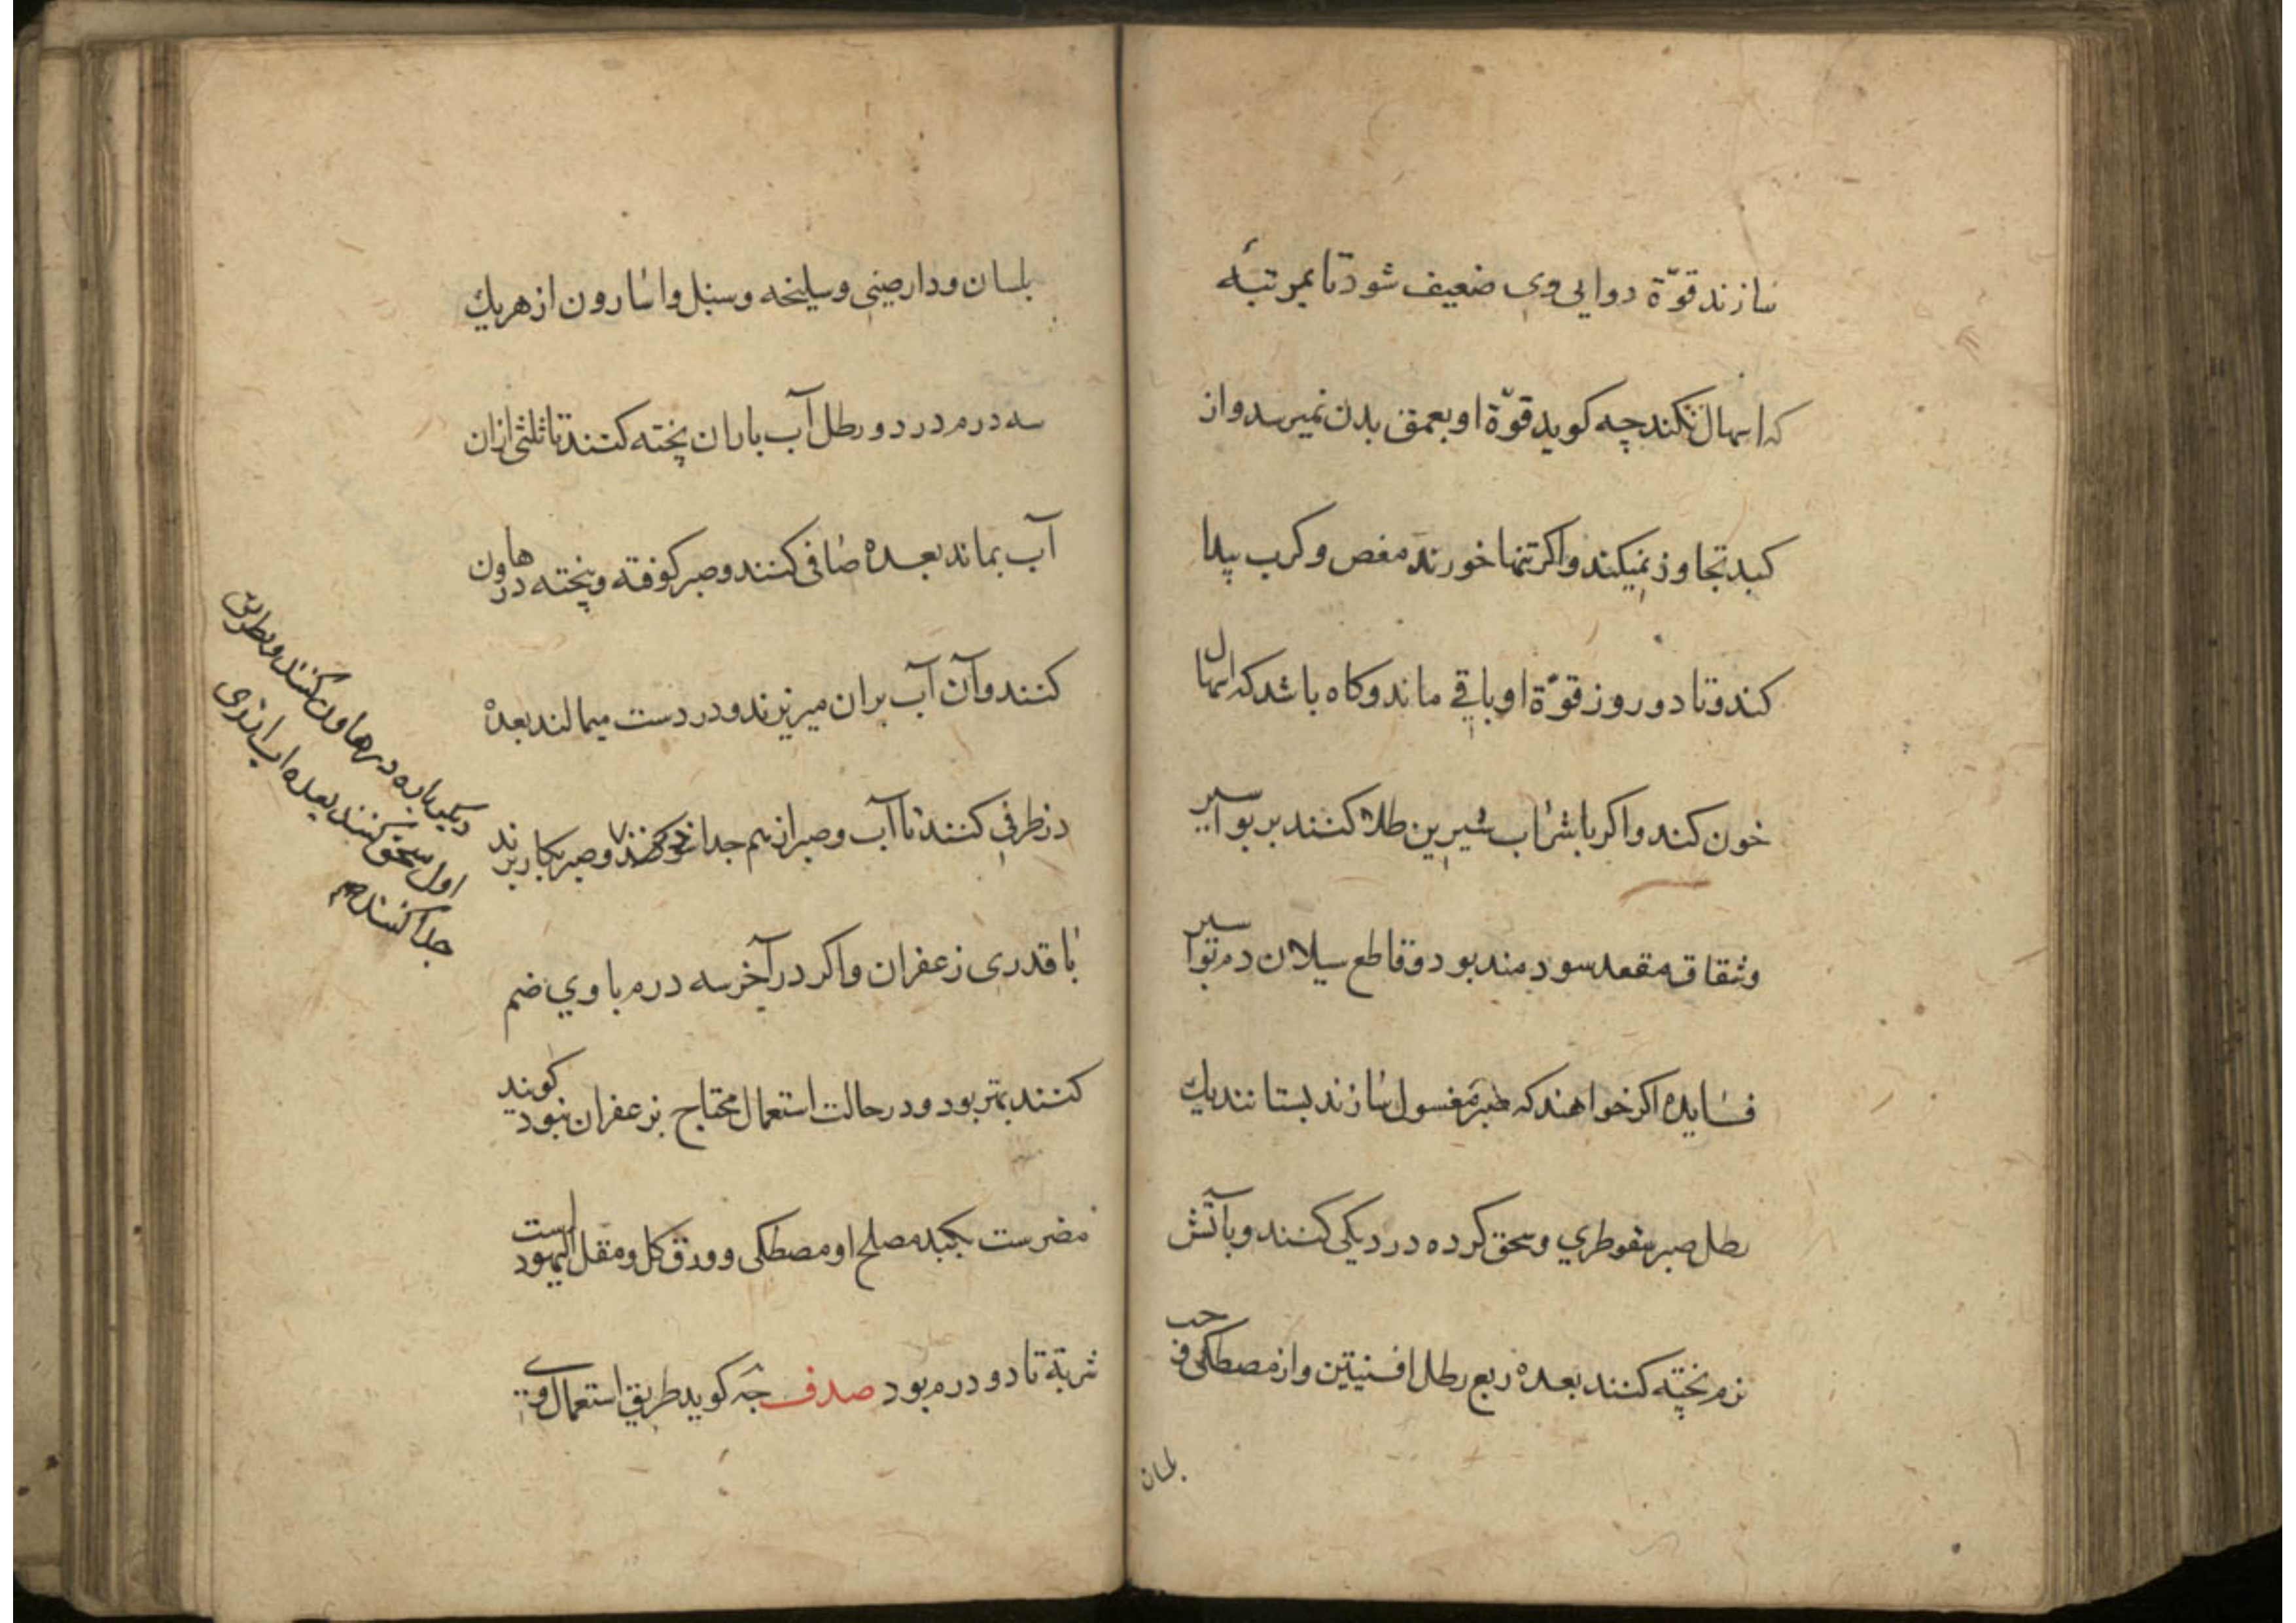 سازند قوّة دوایی وی ضعیف شود تا بمرتبهٔ
که اسهال نکند چه کوید قوّة او بعمق بدن نمیرسد و از
کبد تجاوز نمیکند و اکر تنها خورند مغص و کرب پیدا
کند و تا دو روز قوّة او باقی ماند و کاه باشد که اسهال
خون کند و اکر با شراب شیرین طلا کنند بر بواسیر
و شقاق مقعد سودمند بود و قاطع سیلان دم بواسیر
فایده اکر خواهند که صبر مغسول سازند بستانند یك
رطل صبر سقوطري و سحق کرده در دیکی کنند و بآتش
نرم پخته کنند بعده ربع رطل افسنیتن و از مصطکی و حب
بلسان
بلسان و دارصینی و سلیخه و سنبل و اسارون از هریك
سه درم در دو رطل آب باران پخته کنند تا ثلثی ازان
آب بماند بعده صافی کنند و صبر کوفته و پخته در هاون
کنند و آن آب بران میریزند و در دست میمالند بعده
در ظرفی کنند تا آب و صبر از هم جدا شوند و صبر بکار برند
با قدری زعفران و اکر در آخر سه درم با وي ضم
کنند بهتر بود و در حالت استعمال محتاج بزعفران نبود کویند
مضرست بکبد مصلح او مصطکی و ورق کل و مقل الیهود است
شربة تا دو درم بود صدف جه کوید طریق استعمال وی
دیکرباره در هاون کنند و بطریق
اول سحق کنند بعده اب از وی
جدا کنند صح